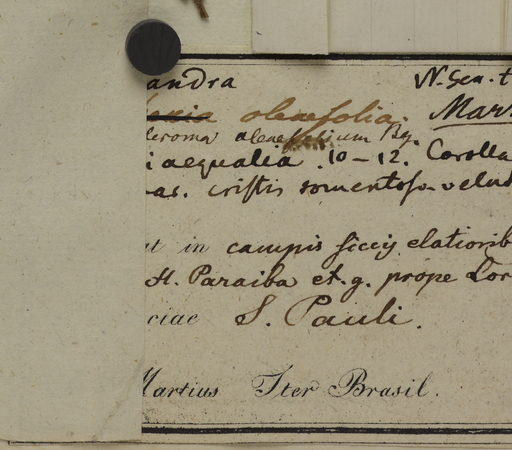 andra N. Gen. t
olenefolia. Mar
leroma oleaefolium Bg.
aequalia 10-12. Corolla
as. cristis tomentoso-velu
at in campis siccis elatiorib
H. Paraiba et. g. prope Lor
ciae S. Pauli.
Martius Iter Brasil.